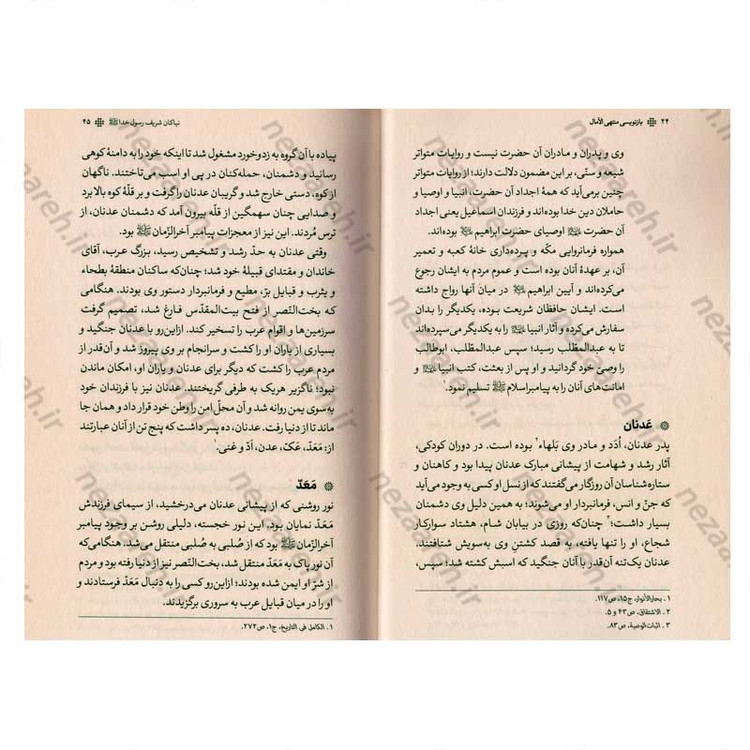 ۲۴ بازنویسی منتهی الآمال
وی و پدران و مادران آن حضرت نیست و روایات متواتر
شیعه و سنّی، بر این مضمون دلالت دارند؛ از روایات متواتر
چنین برمی‌آید که همهٔ اجداد آن حضرت، انبیا و اوصیا و
حاملان دین خدا بوده‌اند و فرزندان اسماعیل یعنی اجداد
آن حضرت ﷺ اوصیای حضرت ابراهیم بوده‌اند.
همواره فرمانروایی مکّه و پرده‌داری خانهٔ کعبه و تعمیر
آن، بر عهدهٔ آنان بوده است و عموم مردم به ایشان رجوع
می‌کرده‌اند و آیین ابراهیم در میان آنها رواج داشته
است. ایشان حافظان شریعت بوده، یکدیگر را بدان
سفارش می‌کرده و آثار انبیا را به یکدیگر می‌سپرده‌اند
تا به عبدالمطلب رسید؛ سپس عبدالمطلب، ابوطالب
را وصیّ خود گردانید و او پس از بعثت، کتب انبیا و
امانت‌های آنان را به پیامبر اسلام ﷺ تسلیم نمود.۱
عَدنان
پدر عدنان، اُدَد و مادر وی بَلهاء۲ بوده است. در دوران کودکی،
آثار رشد و شهامت از پیشانی مبارک عدنان پیدا بود و کاهنان و
ستاره‌شناسان آن روزگار می‌گفتند که از نسل او کسی به وجود می‌آید
که جنّ و انس، فرمانبردار او می‌شوند؛ به همین دلیل وی دشمنان
بسیار داشت؛۳ چنان‌که روزی در بیابان شام، هشتاد سوارکار
شجاع، او را تنها یافته، به قصد کشتنِ وی به‌سویش شتافتند.
عدنان یک‌تنه آن‌قدر با آنان جنگید که اسبش کشته شد؛ سپس،
۱ . بحارالأنوار، ج۱۵، ص۱۱۷.
۲ . الاشتقاق، ص۴۳ و ۵.
۳ . اثبات‌الوصیة، ص۸۳.
نیاکان شریف رسول خدا ﷺ ۲۵
پیاده با آن گروه به زدوخورد مشغول شد تا اینکه خود را به دامنهٔ کوهی
رسانید و دشمنان، حمله‌کنان در پی او اسب می‌تاختند. ناگهان
از کوه، دستی خارج شد و گریبان عدنان را گرفت و بر قلّهٔ کوه بالا برد
و صدایی چنان سهمگین از قلّه بیرون آمد که دشمنان عدنان، از
ترس مُردند. این نیز از معجزات پیامبر آخرالزّمان ﷺ بود.
وقتی عدنان به حدّ رشد و تشخیص رسید، بزرگ عرب، آقای
خاندان و مقتدای قبیلهٔ خود شد؛ چنان‌که ساکنان منطقهٔ بطحاء
و یثرب و قبایل بَرّ، مطیع و فرمانبردار دستور وی بودند. هنگامی
که بخت‌النّصر از فتح بیت‌المقدّس فارغ شد، تصمیم گرفت
سرزمین‌ها و اقوام عرب را تسخیر کند. ازاین‌رو با عدنان جنگید و
بسیاری از یاران او را کشت و سرانجام بر وی پیروز شد و آن‌قدر از
مردم عرب را کشت که دیگر برای عدنان و یاران او، امکان ماندن
نبود؛ ناگزیر هریک به طرفی گریختند. عدنان نیز با فرزندان خود
به‌سوی یمن روانه شد و آن محلّ امن را وطن خود قرار داد و همان جا
ماند تا از دنیا رفت. عدنان، ده پسر داشت که پنج تن از آنان عبارتند
از: مَعَدّ، عَکّ، عدن، اُدّ و غنی.۱
مَعَدّ
نور روشنی که از پیشانی عدنان می‌درخشید، از سیمای فرزندش
مَعَدّ نمایان بود. این نور خجسته، دلیلی روشن بر وجود پیامبر
آخرالزّمان ﷺ بود که از صُلبی به صُلبی منتقل می‌شد. هنگامی‌که
آن نور پاک به مَعَدّ منتقل شد، بخت‌النّصر نیز از دنیا رفته بود و مردم
از شرّ او ایمن شده بودند؛ ازاین‌رو کسی را به دنبال مَعَدّ فرستادند و
او را در میان قبایل عرب به سروری برگزیدند.
۱ . الکامل فی التاریخ، ج۱، ص۲۷۲.
nezaareh.ir